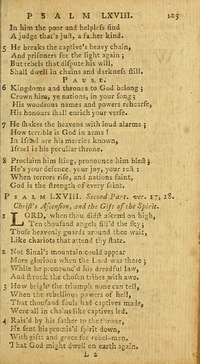 PSALM LXVIII. 125
In him the poor and helpless find
A judge that's just, a father kind.
5 He breaks the captive's heavy chain,
And prisoners see the light again;
But rebels that dispute his will,
Shall dwell in chains and darkness still.
PAUSE.
6 Kingdoms and thrones to God belong;
Crown him, ye nations, in your song;
His wondrous names and powers rehearse,
His honours shall enrich your verse.
7 He shakes the heavens with loud alarms;
How terrible is God in arms!
In Israel are his mercies known,
Israel is his peculiar throne.
8 Proclaim him king, pronounce him blest;
He's your defence, your joy, your rest:
When terrors rise, and nations faint,
God is the strength of every saint.
PSALM LXVIII. Second Part. ver. 17, 18.
Christ's Ascension, and the Gift of the Spirit.
1 LORD, when thou didst ascend on high,
Ten thousand angels fill'd the sky;
Those heavenly guards around thee wait,
Like chariots that attend thy state.
2 Not Sinai's mountain could appear
More glorious when the Lord was there;
While he pronounc'd his dreadful law,
And struck the chosen tribes with awe.
3 How bright the triumph none can tell,
When the rebellious powers of hell,
That thousand souls had captives made,
Were all in chains like captives led.
4 Rais'd by his father to the throne,
He sent his promis'd spirit down,
With gifts and grace for rebel-men,
That God might dwell on earth again.
L 2